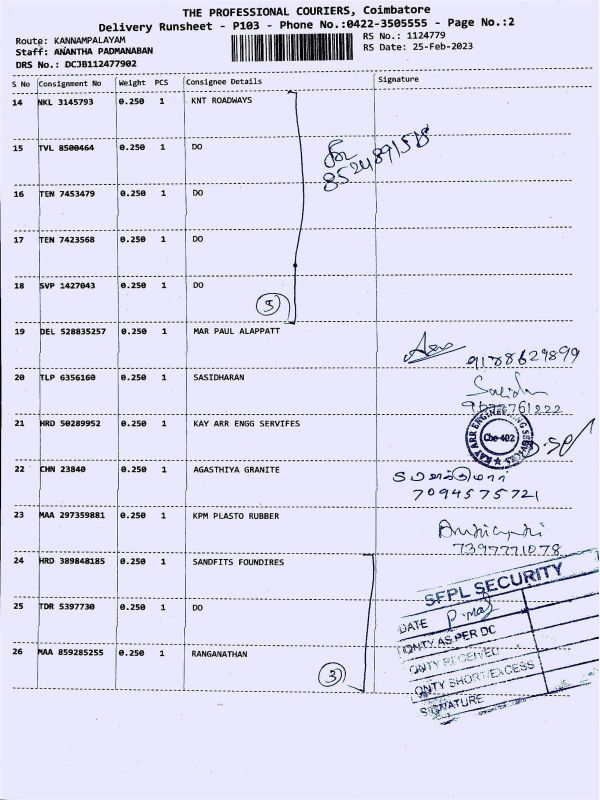 THE PROFESSIONAL COURIERS, Coimbatore
Delivery Runsheet - P103 - Phone No.:0422-3505555 - Page No.:2
Route: KANNAMPALAYAM
RS No.: 1124779
Staff: ANANTHA PADMANABAN
RS Date: 25-Feb-2023
DRS No.: DCJB112477902
S No Consignment No Weight PCS Consignee Details Signature
14 NKL 3145793 0.250 1 KNT ROADWAYS
15 TVL 8500464 0.250 1 DO
8524891518
16 TEN 7453479 0.250 1 DO
17 TEN 7423568 0.250 1 DO
18 SVP 1427043 0.250 1 DO
5
19 DEL 528835257 0.250 1 MAR PAUL ALAPPATT
9188629899
20 TLP 6356160 0.250 1 SASIDHARAN
21 HRD 50289952 0.250 1 KAY ARR ENGG SERVIFES
KAY ARR ENGINEERING SERVICES
Cbe-402
22 CHN 23840 0.250 1 AGASTHIYA GRANITE
7094575721
23 MAA 297359881 0.250 1 KPM PLASTO RUBBER
7397771078
24 HRD 389848185 0.250 1 SANDFITS FOUNDIRES
SFPL SECURITY
25 TDR 5397730 0.250 1 DO
DATE
QNTY AS PER DC
26 MAA 859285255 0.250 1 RANGANATHAN
QNTY RECEIVED
3
QNTY SHORT/EXCESS
SIGNATURE